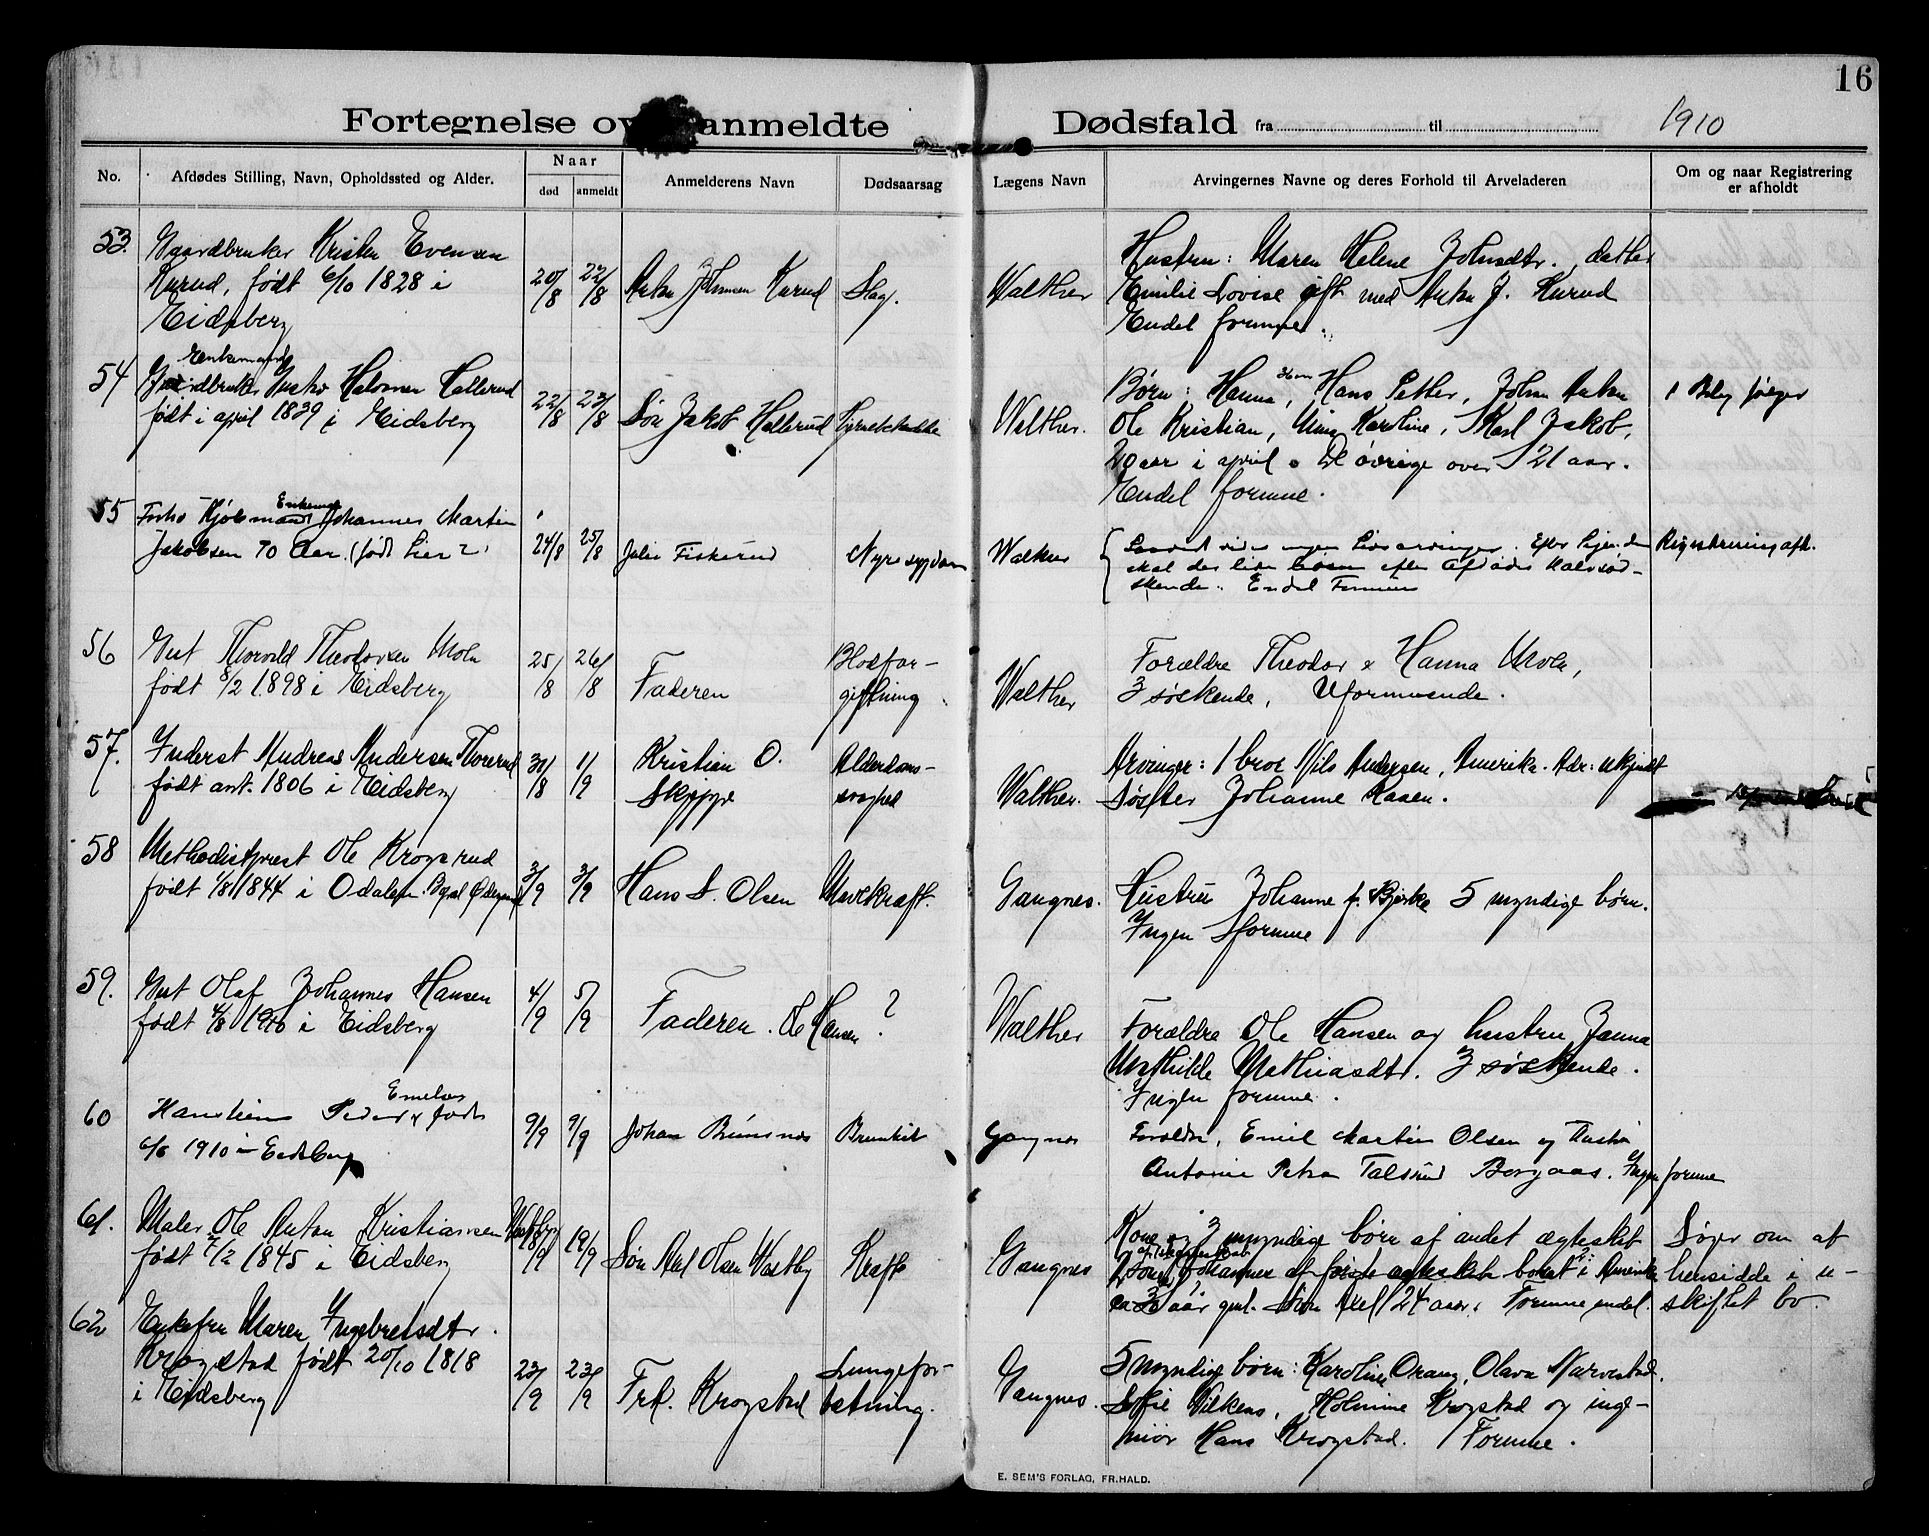 16
Fortegnelse ov anmeldte Dødsfald fra til 1910
No. Afdødes Stilling, Navn, Opholdssted og Alder. Naar død anmeldt Anmelderens Navn Dødsaarsag Lægens Navn Arvingernes Navne og deres Forhold til Arveladeren Om og naar Registrering er afholdt
53. Gaardbruker Kristen Evensen
Kurud, født 6/10 1828 i
Eidsberg
20/8 22/8 Anton Johnsen Kurud Slag. Walther
Hustru: Maren Helene Johnsdtr. datter
Emilie Lovise gift med Anton J. Kurud
Endel formue.
54 Enkemand
Gaardbruker Halvorsen Hallerud
født i april 1839 i Eidsberg
22/8 23/8 Søn Jakob Hallerud Walther.
Børn: Hanna, Hans Petter, Johan Anton
Ole Kristian, Mina Karoline, Karl Jakob,
20 aar i april. De øvrige over 21 aar.
Endel formue.
1 Bilag følger
55 Enkemand
Forhv Kjøbmand Johannes Martin
Jakobsen 70 Aar. (født Lier?)
24/8 25/8 Julie Fiskerud Nyresygdom Walther
Saavidt vides ingen Livsarvinger. Efter Sigende
skal der leve børn efter Afdødes Halvsød-
skende. Endel Formue
Registrering afh.
56 Gut Thorvald Theodorsen Moen
født 8/2 1898 i Eidsberg
25/8 26/8 Faderen Blodfor-
giftning Walther
Forældre Theodor & Hanna Moen,
3 søskende, Uformuende.
57. Inderst Andreas Andersen Thorerud
født ant. 1806 i Eidsberg
30/8 1/9 Kristian O.
Skjeppe Alderdoms-
svaghed Walther.
Arvinger: 1 bror Nils Andersen, Amerika. Adr: ukjendt
Søster Johanne Kaasen.
58 Methodistprest Ole Krogsrud
født 1/8 1844 i Odalen.
3/9 3/9 Hans S. Olsen Mavekræft. Gangnes.
Hustru Johanne f. Bjerke 5 myndige børn.
Ingen formue
59. Gut Olaf Johannes Hansen
født 4/8 1910 i Eidsberg
4/9 5/9 Faderen. Ole Hansen ? Walther
Forældre Ole Hansen og hustru Janna
Mathilde Mathiasdtr. 3 søskende.
Ingen formue.
60 Emelsen
Peder født
6/6 1910 i Eidsberg
9/9 9/9 Johan Gangnes
Forældre, Emil Martin Olsen og Hustru
Antonie Petra Talsrud Borgaas. Ingen formue
61. Maler Ole Anton Kristiansen Vestby
født 7/2 1845 i Eidsberg
18/9 19/9 Søn Axel Olsen Vestby Kræft Gangnes
Kone og 3 myndige børn af andet ægteskab
1 søn, Johannes af første ægteskab bosat i Amerika
ca 30 aar gml. Søn Axel 24 aar. Formue endel.
Søger om at
hensidde i u-
skiftet bo.
62 Enkefru Maren Ingebretsdtr.
Krogstad født 20/10 1818
i Eidsberg
23/9 23/9 Frk. Krogstad Lungefor-
betning. Gangnes.
5 myndige børn: Karoline Orang, Olava Narvestad,
Sofie Vilkens, Holmine Krogstad og inge-
niør Hans Krogstad. Formue.
E. SEM'S FORLAG, FR.HALD.